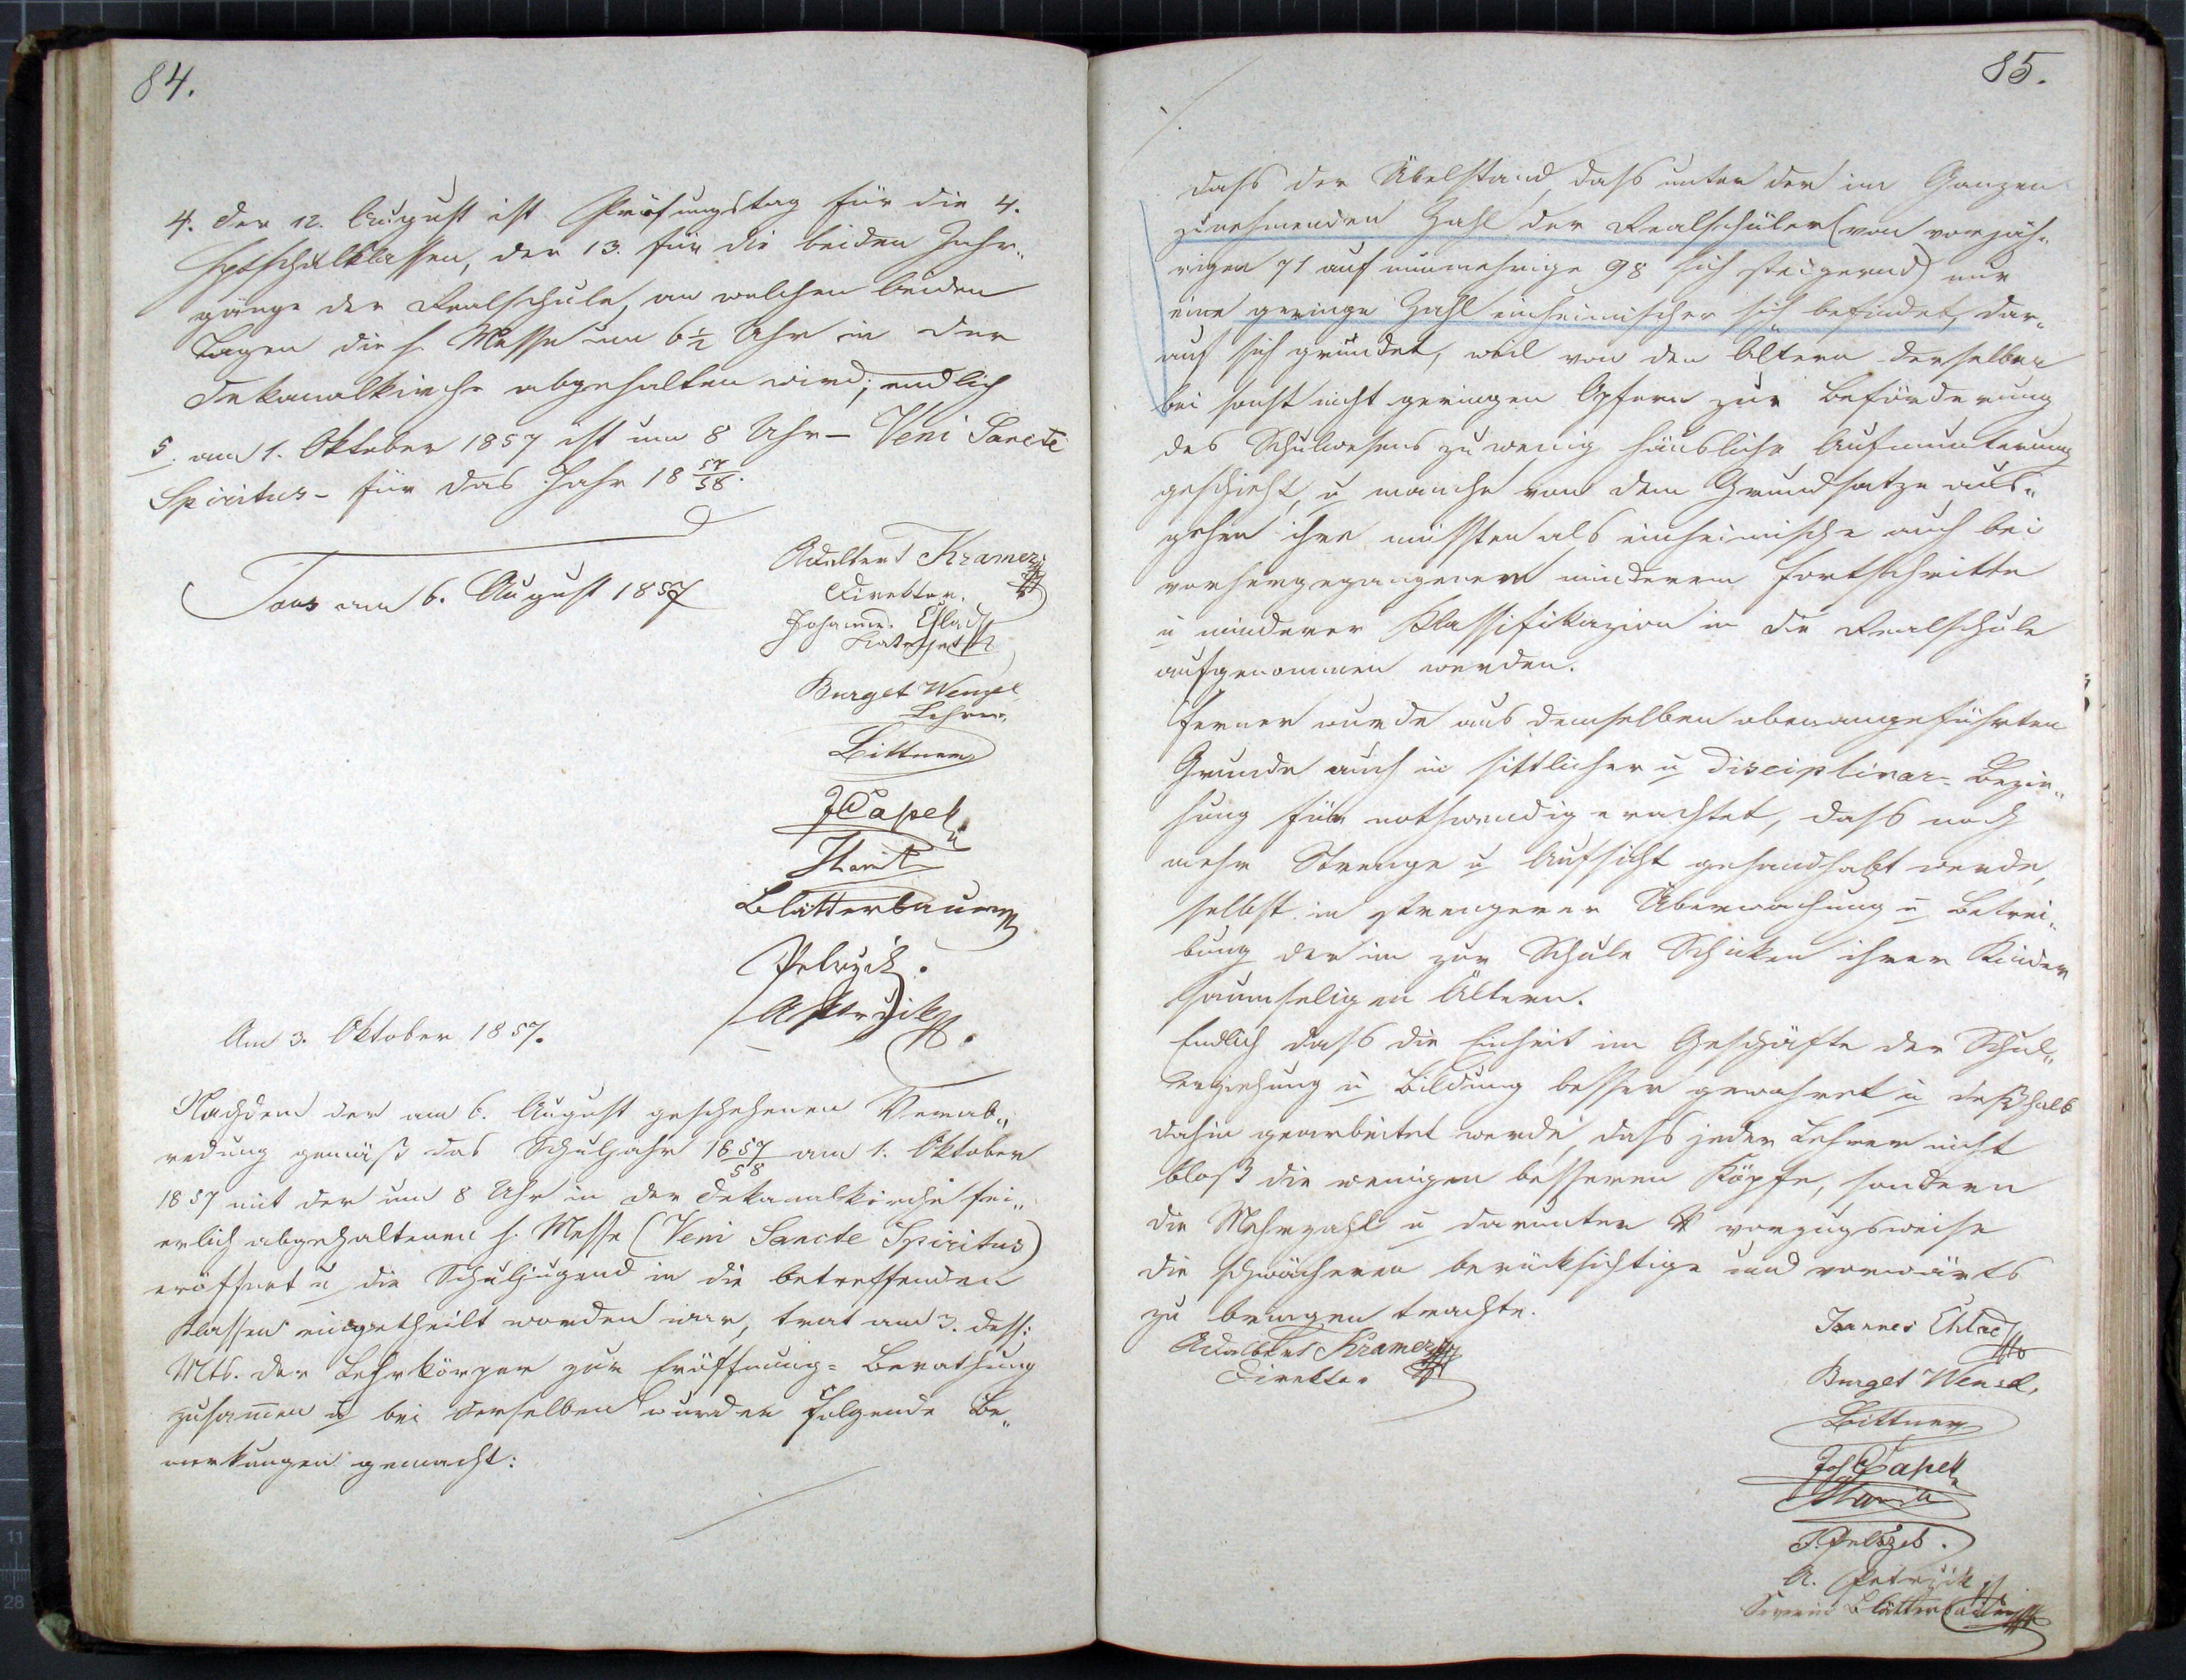 84.
4. der 12. August ist Prüfungstag für die 4.
Hptschulklassen, der 13. für die beiden Jahr„
gänge der Realschule, an welchen beiden
Tagen die h. Messe um 6½ Uhr in der
Dekanalkirche abgehalten wird; endlich
5. am 1. Oktober 1857 ist um 8 Uhr – Veni Sancte
Spiritus – für das Jahr 18 57/58.
Taus am 6. August 1857
Adalbert Kramer
Direktor.
Johann
Katechet
Burget Wenzel
Lehrer
Bittner
J Čapek
Blätterbauer
Am 3. Oktober 1857.
Nachdem der am 6. August geschehenen Verab„
redung gemäß das Schuljahr 18 57/58 am 1. Oktober
1857 mit der um 8 Uhr in der Dekanalkirche fei„
erlich abgehaltenen h. Messe (Veni Sancte Spiritus)
eröffnet u die Schuljugend in die betreffenden
Klassen eingetheilt worden war, trat am 3. dess:
Mts. der Lehrkörper zur Eröffnung= Berathung
zusamen u bei derselben wurden folgende Be„
merkungen gemacht:
85.
dass der Übelstand, dass unter der im Ganzen
zunehmenden Zahl der Realschüler (von vorjäh„
rigen 71 auf nunmehrige 98 sich steigernd) nur
eine geringe Zahl einheimischer sich befindet, dar„
auf sich gründet, weil von den Ältern derselben
bei sonst nicht geringen Opfern zur Beförderung
des Schulwesens zu wenig häusliche Aufmunterung
geschieht, u manche von dem Grundsatze aus„
gehen ihre müssten als einheimische auch bei
vorhergegangenem minderem Fortschritte
u minderer Klassifikazion in die Realschule
aufgenommen werden.
Ferner wurde aus demselben obenangeführten
Grunde auch in sittlicher u Disciplinar= Bezie„
hung für nothwendig erachtet, dass noch
mehr Strenge u Aufsicht gehandhabt werde,
selbst in strengerer Überwachung u Betrei„
bung der im zur Schule Schicken ihrer Kinder
saumseligen Ältern.
Endlich dass die Einheit im Geschäfte der Schul„
erziehung u Bildung besser gewahret u deßhalb
dahin gearbeitet werde, dass jeder Lehrer nicht
bloß die wenigen besseren Köpfe, sondern
die Mehrzahl u darunter vorzugsweise
die schwächeren berücksichtige und vorwärts
zu bringen trachte.
Adalbert Kramer
Direktor
Joannes
Burget Wenzel.
Bittner
Jos Čapek
A. Petrzik
Severin Blätterbauer